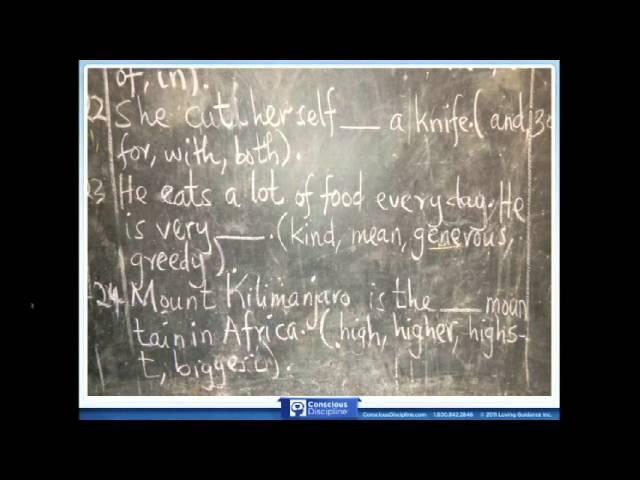 of, in).
22 She cut herself __ a knife. (and,
for, with, both).
23 He eats a lot of food every day. He
is very __. (kind, mean, generous,
greedy).
24 Mount Kilimanjaro is the __ moun
tain in Africa. (high, higher, highs-
t, biggest).
Conscious
Discipline
ConsciousDiscipline.com 1.800.842.2846 © 2011 Loving Guidance Inc.